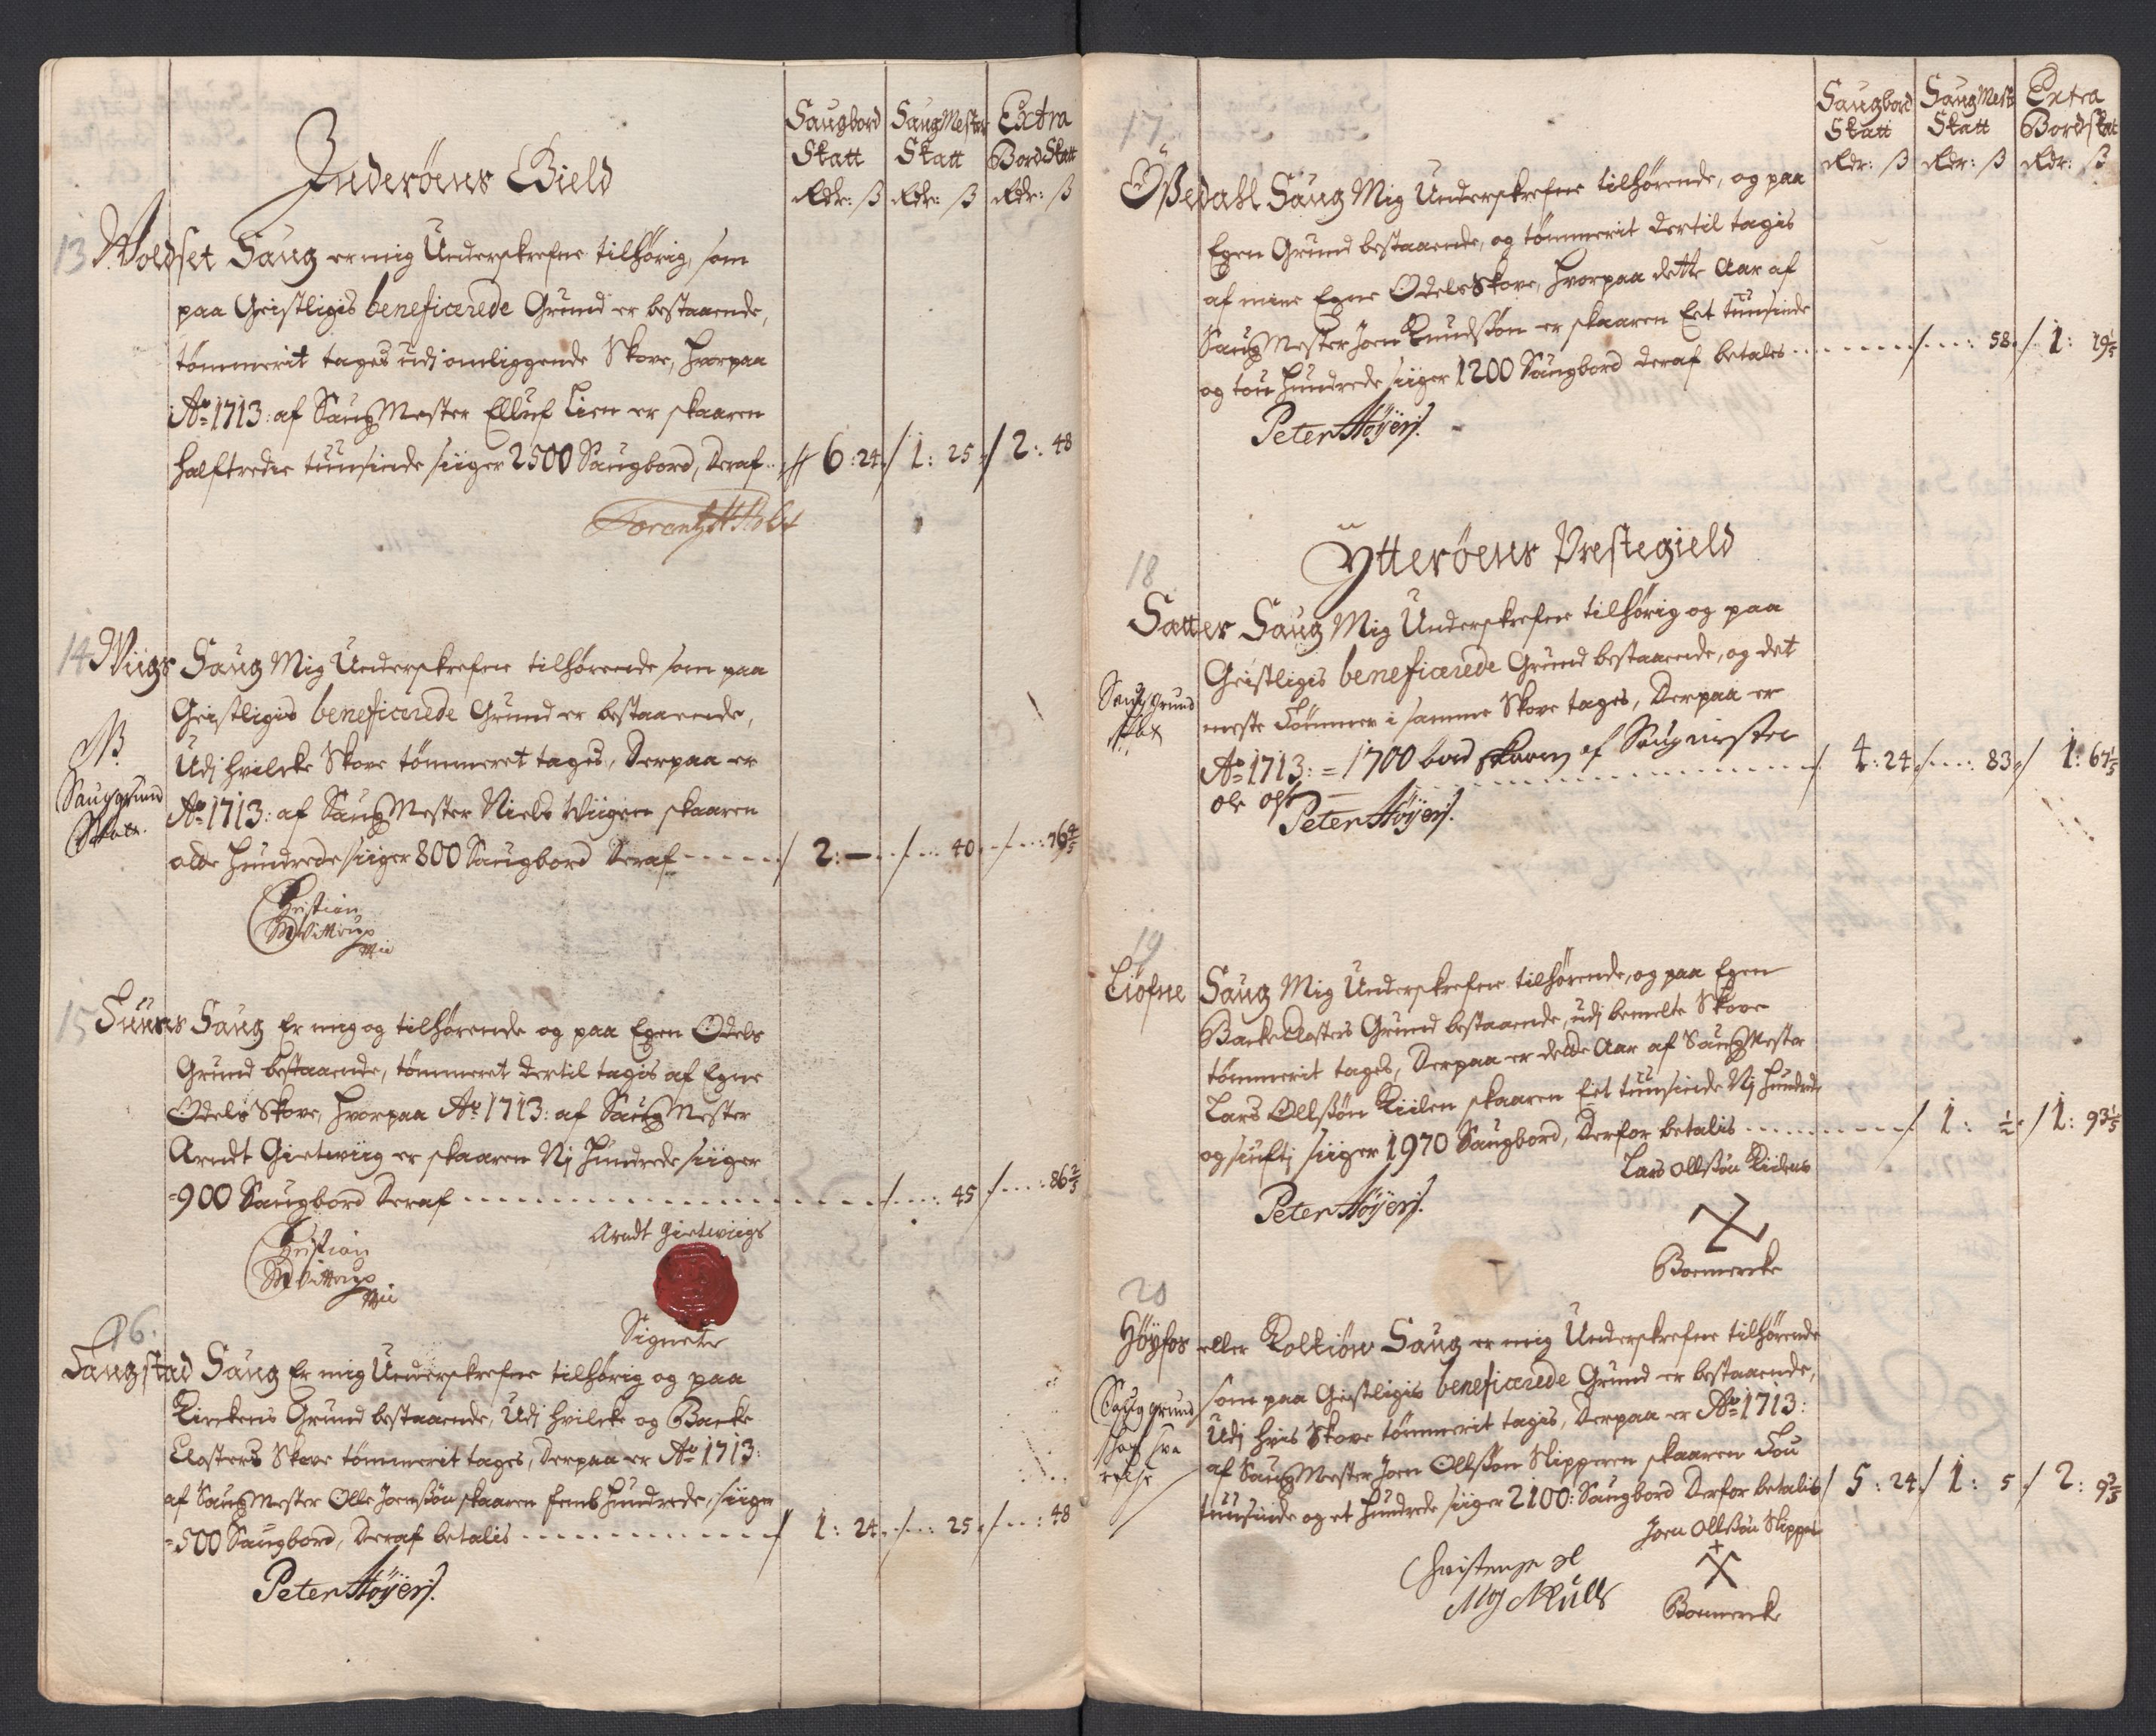 Saugbord Skatt
Rdr: ß
SaugMester Skatt
Rdr: ß
Extra BordSkatt
Rdr: ß
Inderöens Gield
13 Woldset Saug er mig Underskrefne tilhörig, som
paa Geistligis beneficerede Grund er bestaaende,
tömmerit tages udj omliggende Skove, hvorpaa
Ao 1713: af SaugMester Elluf Lien er skaaren
halftredie tuusinde siiger 2500 Saugbord, Deraf .. // 6 : 24 / 1 : 25 / 2 : 48
14 Wiigs Saug Mig Underskrefne tilhörende som paa
Geistligis beneficerede Grund er bestaaende,
NB
Udj hvilcke Skove tömmeret tages, Derpaa er
Sauggrund
Skatt.
Ao 1713: af SaugMester Niels Wiigen skaaren
otte Hundrede siiger 800 Saugbord Deraf ----- / 2 : — / ... 40 / ... 76 4/5
Christian
Wittrup
Mii
15 Suuls Saug Er mig og tilhörende og paa Egen Odels
Grund bestaaende, tömmeret dertil tagis af Egne
Odels Skove, hvorpaa Ao 1713: af SaugMester
Arndt Gietwiig er skaaren Nj Hundrede siiger
=900 Saugbord Deraf ---- / ... 45 / ... 86 2/5
Christian
Wittrup
Mii
Arndt Gietwiigs
Signete
16.
Saugstad Saug Er mig Underskrefne tilhörig og paa
Kirckens Grund bestaaende, Udj hvilcke og Backe
Closters Skove tömmerit tages, Derpaa er Ao 1713:
af SaugMester Olle Joenssön skaaren femb Hundrede, siiger
=500 Saugbord, Deraf betalis ---- / 1 : 24 / ... 25 / ... 48
Peter Höyer
Saugbord Skatt
Rdr: ß
SaugMest Skatt
Rdr: ß
Extra Bordskat
Rdr: ß
17
Ößedahl Saug Mig Underskrefne tilhörende, og paa
Egen Grund bestaaende, og tömmerit dertil tagis
af mine Egne Odels Skove, hvorpaa dette Aar af
SaugMester Joen Knudssön er skaaren Eet tuusinde
og tou Hundrede siiger 1200 Saugbord Deraf betales ---- / ... 58 / 1 : 19 1/5
Peter Höyer
Ytteröens Prestegield
18
Sætter Saug Mig Underskrefne tilhörig og paa
Geistligis beneficerede Grund bestaaende, og det
Saug Grund
meste Tömmer i samme Skove tages, Derpaa er
Ao 1713: = 1700 bord skaaren af Saugmester ---- / 4 : 24 / ... 83 / 1 : 67 1/5
Ole Ols
Peter Höyer
19
Liöfne Saug Mig Underskrefne tilhörende, og paa Egen
Backe Closters Grund bestaaende, udj bemelte Skove
tömmerit tages, Derpaa er dette Aar af SaugMester
Lars Ollssön Kiilen skaaren Eet tuusinde Nj Hundrede
og siuftj siiger 1970 Saugbord, Derfor betalis ---- / 1 : ½ / 1 : 93 1/5
Lars Ollssön Kiilens
Peter Höyer
Boemercke
20
Höyfos eller Koltiönn Saug er mig Underskrefne tilhörende
Saug grund
som paa Geistligis beneficerede Grund er bestaaende,
Udj hvis Skove tömmerit tagis, Derpaa er Ao 1713:
af SaugMester Joen Ollssön Slipperen skaaren Tou
tuusinde og et Hundrede siiger 2100: Saugbord Derfor betalis / 5 : 24 / 1 : 5 / 2 : 9 3/5
Joen Ollssön Slipper
Boemercke